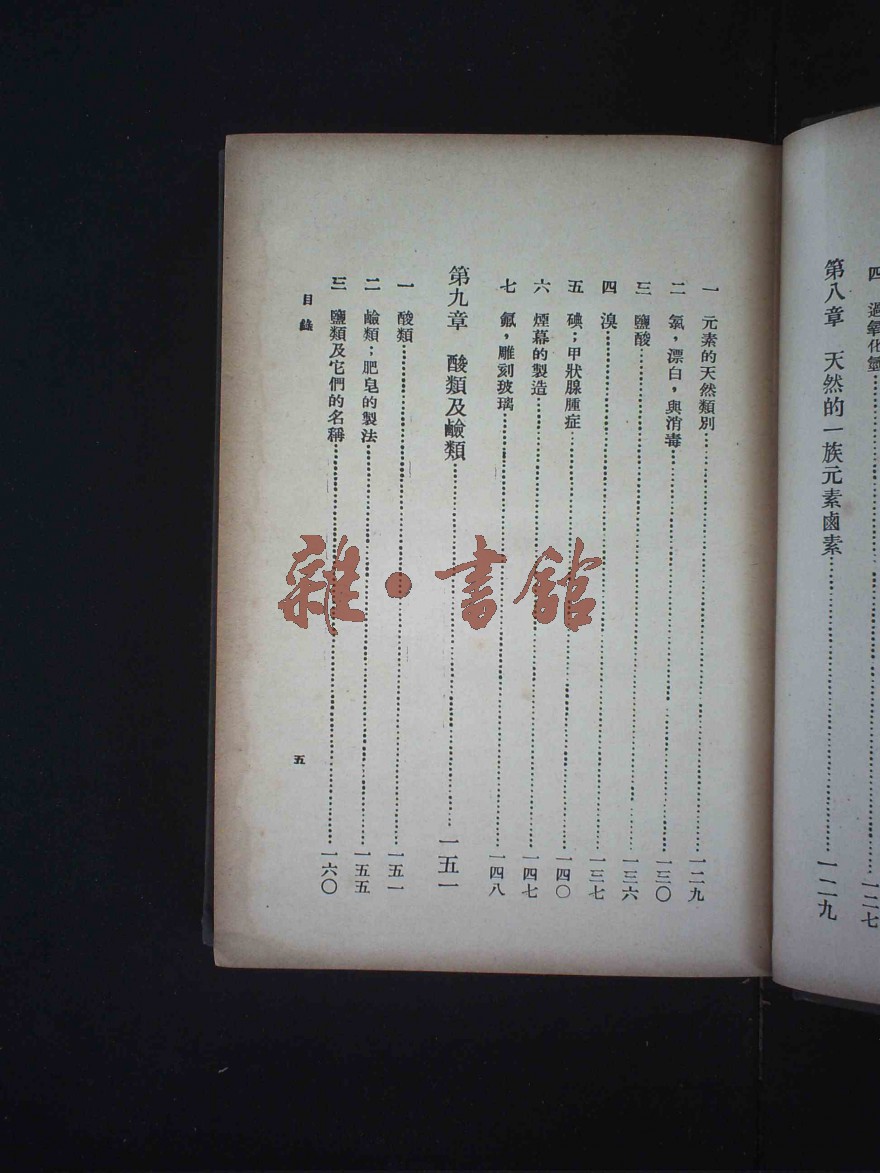 四 過氧化氫……一二七
第八章 天然的一族元素鹵素……一二九
一 元素的天然類別……一二九
二 氯，漂白，與消毒……一三〇
三 鹽酸……一三六
四 溴……一三七
五 碘；甲狀腺腫症……一四〇
六 煙幕的製造……一四七
七 氟，雕刻玻璃……一四八
第九章 酸類及鹼類……一五一
一 酸類……一五一
二 鹼類；肥皂的製法……一五五
三 鹽類及它們的名稱……一六〇
目錄
五
雜·書館